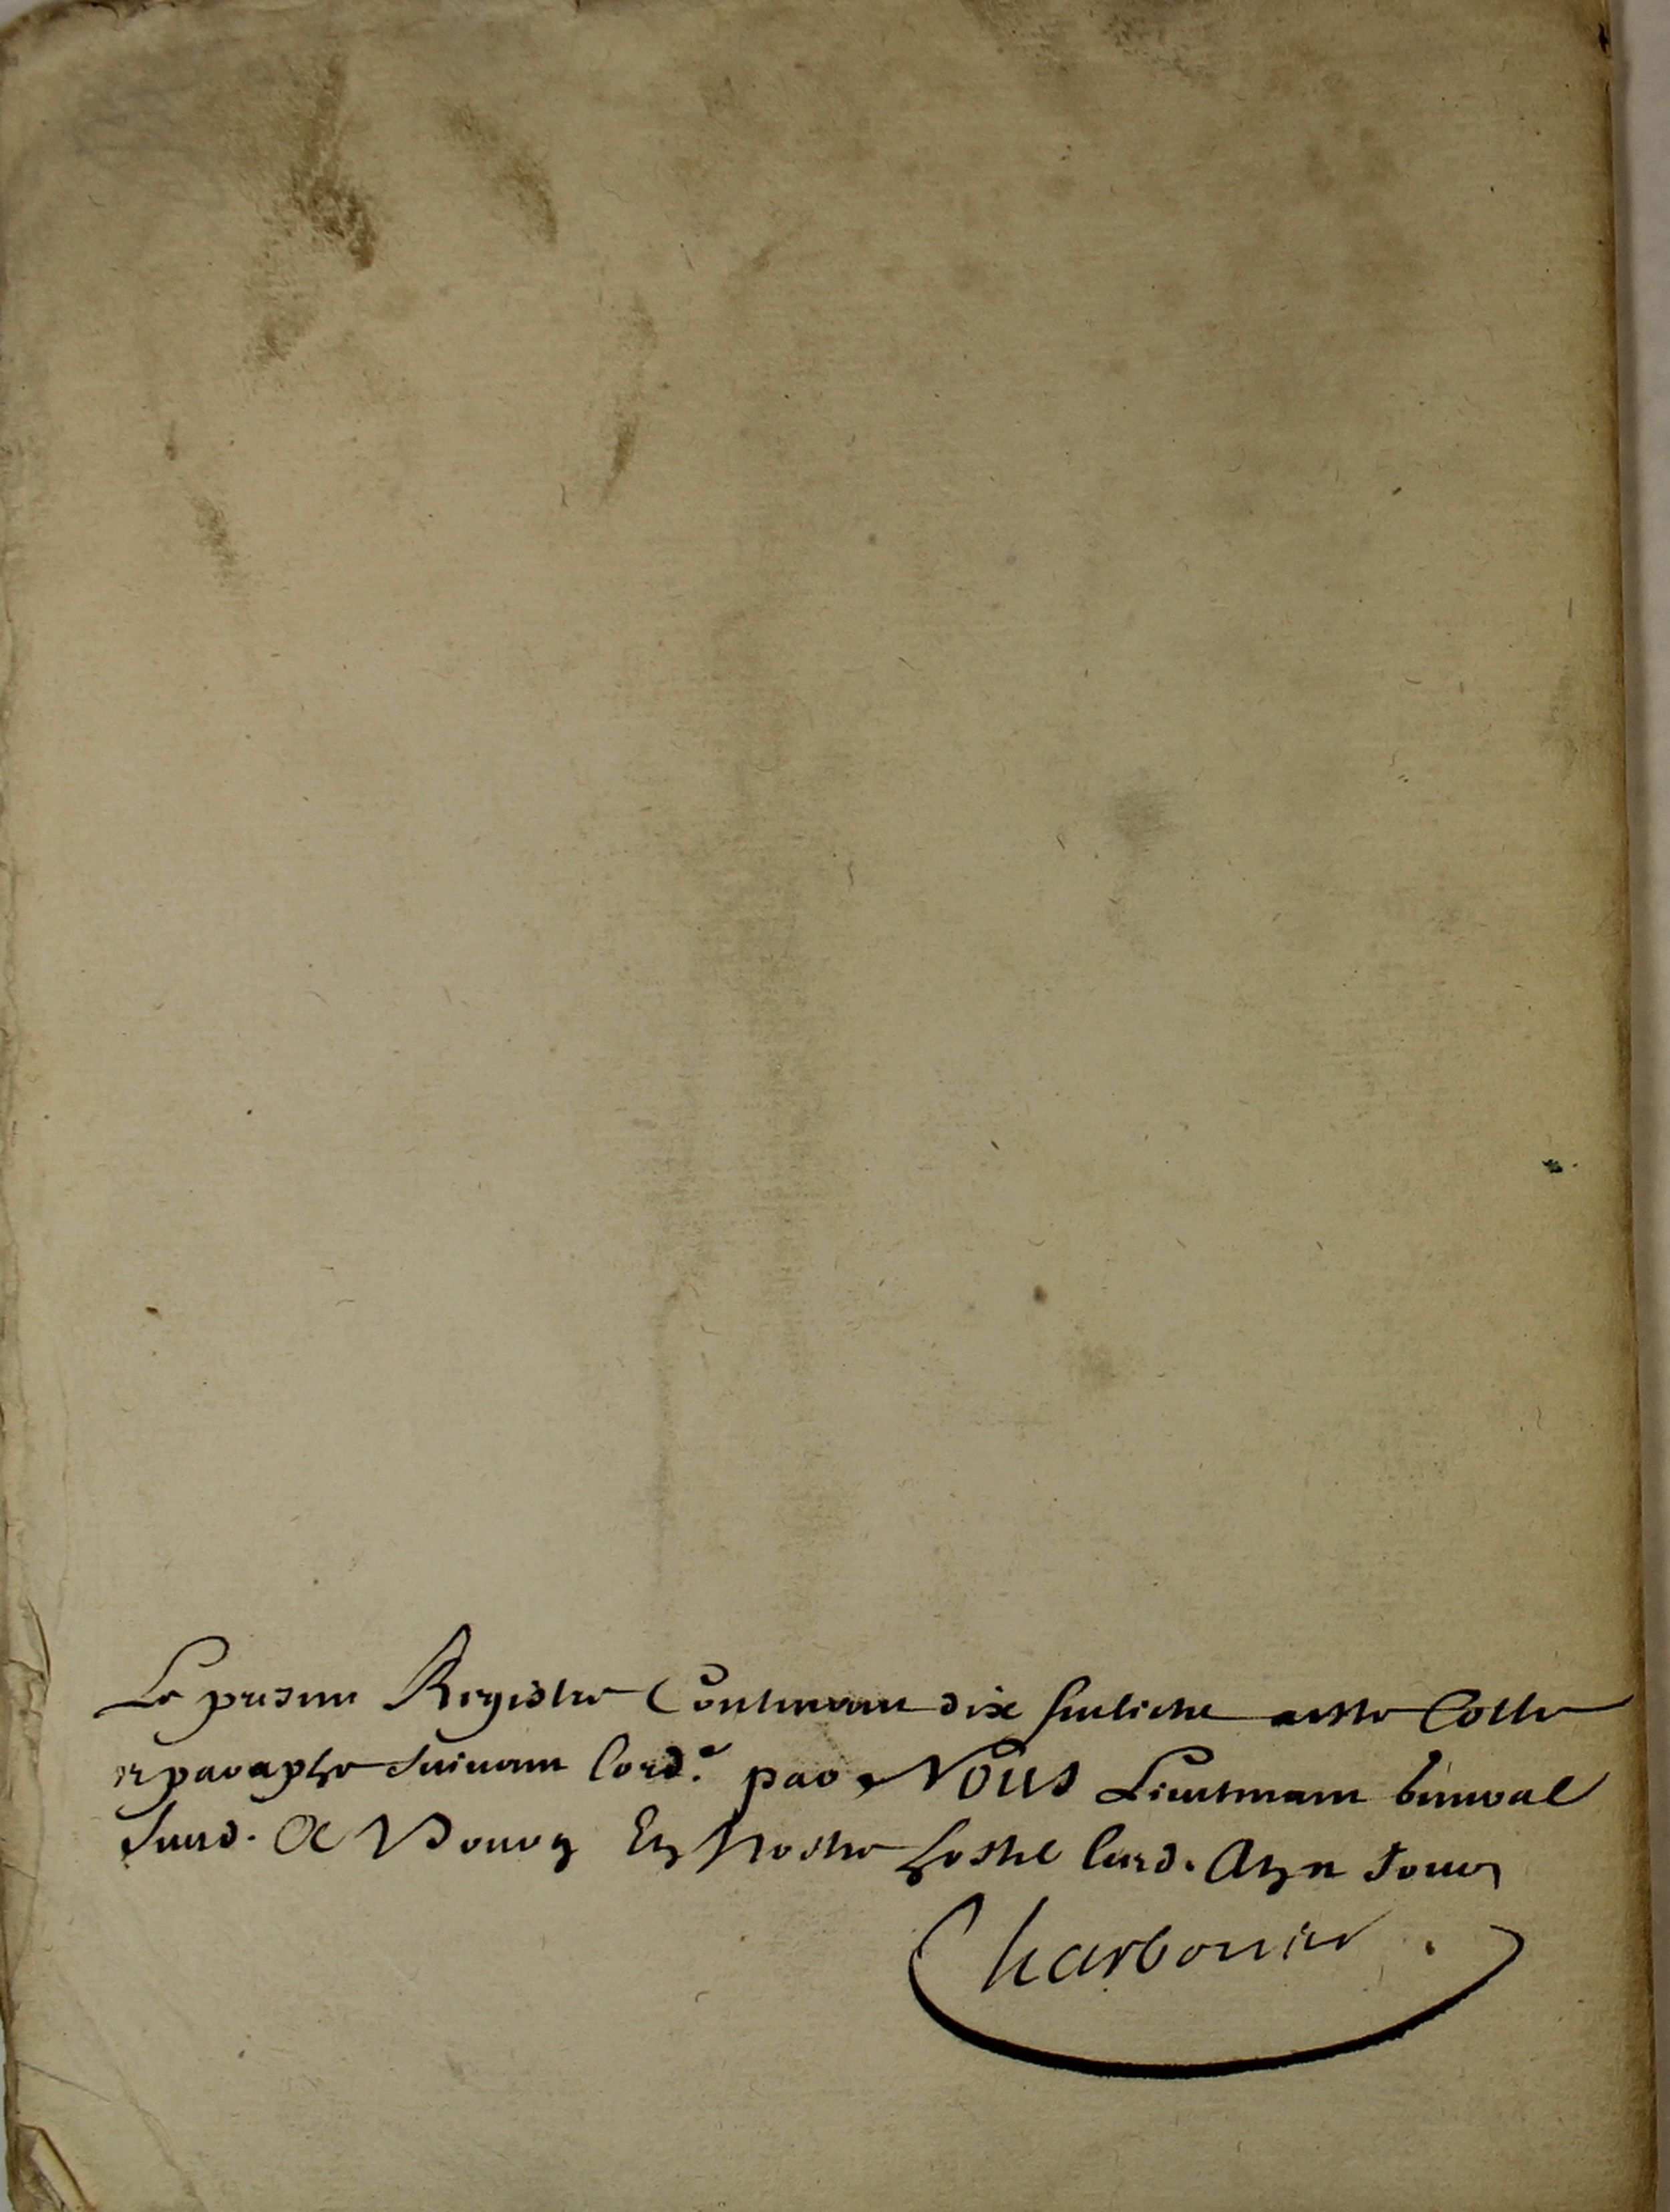 Le present Registre Contenant dix feulietz a este Cotté
et paraphé suivant l'ord.e par Nous Lieutenant general
susd. A Bourg En Nostre hostel lesd. An et Jour
Charbonier.